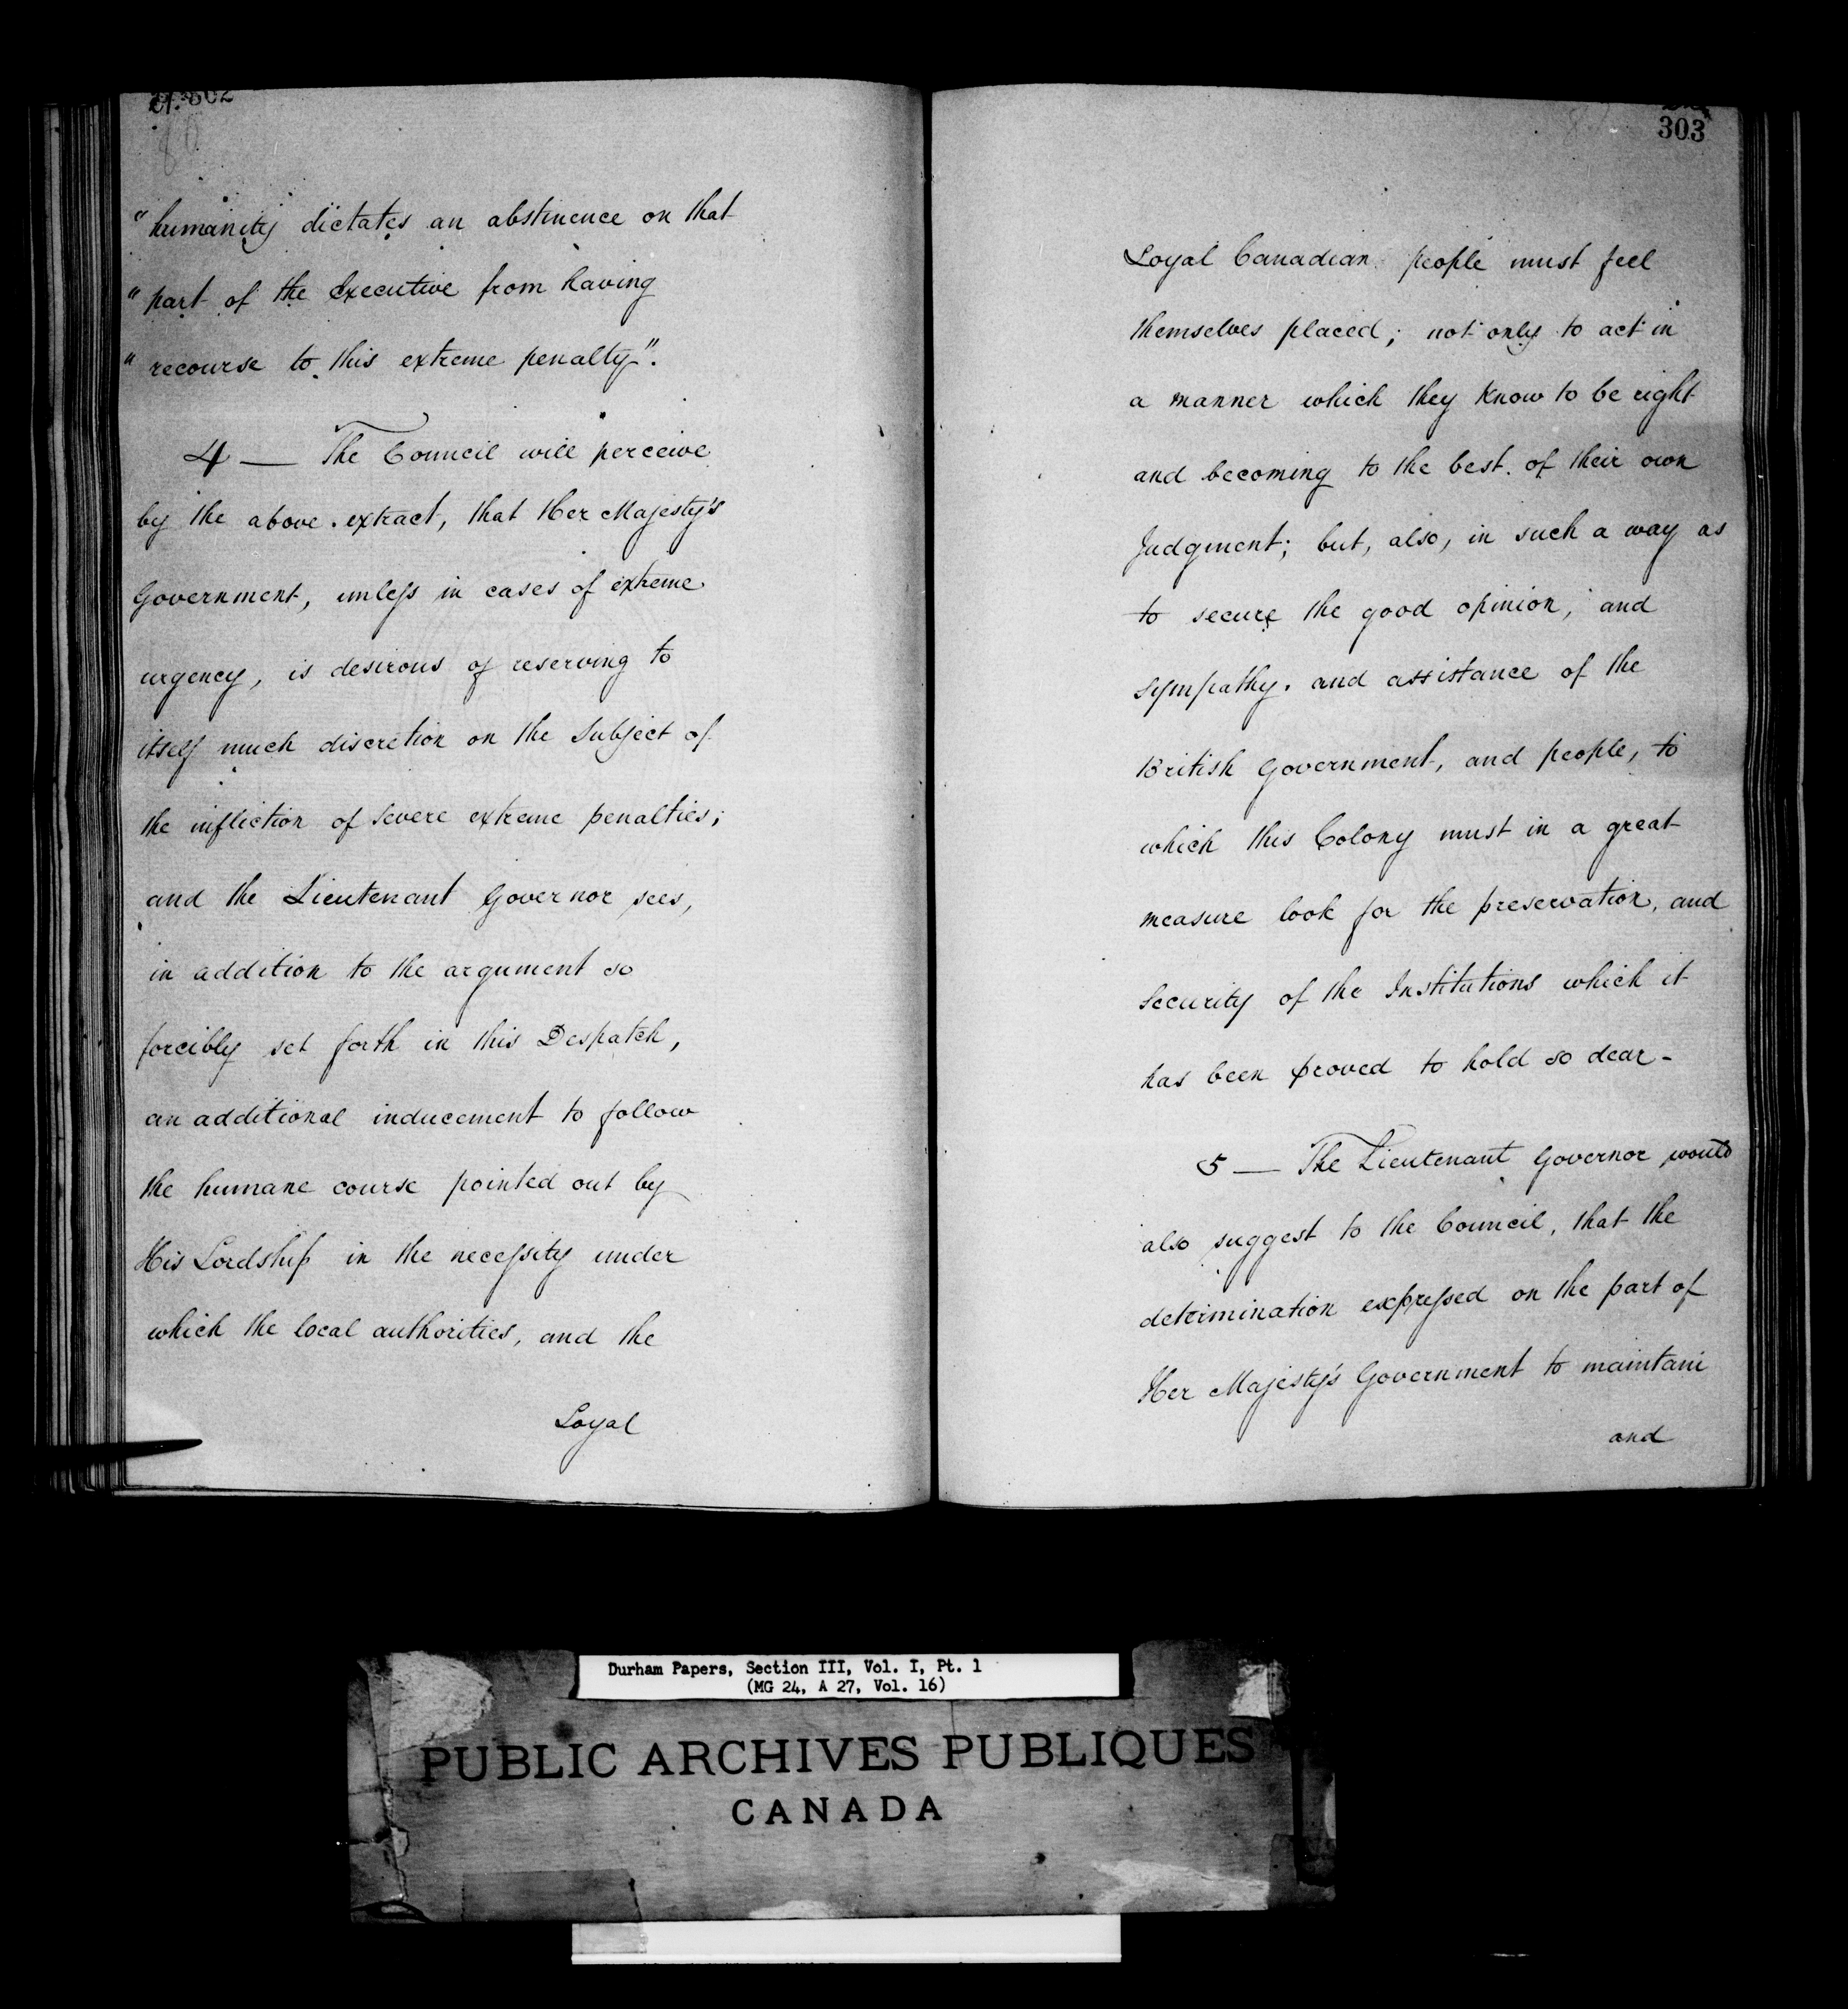 302
80
"humanity dictates an abstinence on that
"part of the Executive from having
"recourse to this extreme penalty".
4 — The Council will perceive
by the above extract, that Her Majesty's
Government, unless in cases of extreme
urgency, is desirous of reserving to
itself much discretion on the Subject of
the infliction of severe extreme penalties;
and the Lieutenant Governor sees,
in addition to the argument so
forcibly set forth in this Despatch,
an additional inducement to follow
the humane course pointed out by
His Lordship in the necessity under
which the local authorities, and the
Loyal
303
Loyal Canadian people must feel
themselves placed; not only to act in
a manner which they know to be right
and becoming to the best of their own
Judgment; but, also, in such a way as
to secure the good opinion, and
sympathy, and assistance of the
British Government, and people, to
which this Colony must in a great
measure look for the preservation, and
Security of the Institutions which it
has been proved to hold so dear -
5 — The Lieutenant Governor would
also suggest to the Council, that the
determination expressed on the part of
Her Majesty's Government to maintain
and
Durham Papers, Section III, Vol. I, Pt. 1
(MG 24, A 27, Vol. 16)
PUBLIC ARCHIVES PUBLIQUES
CANADA